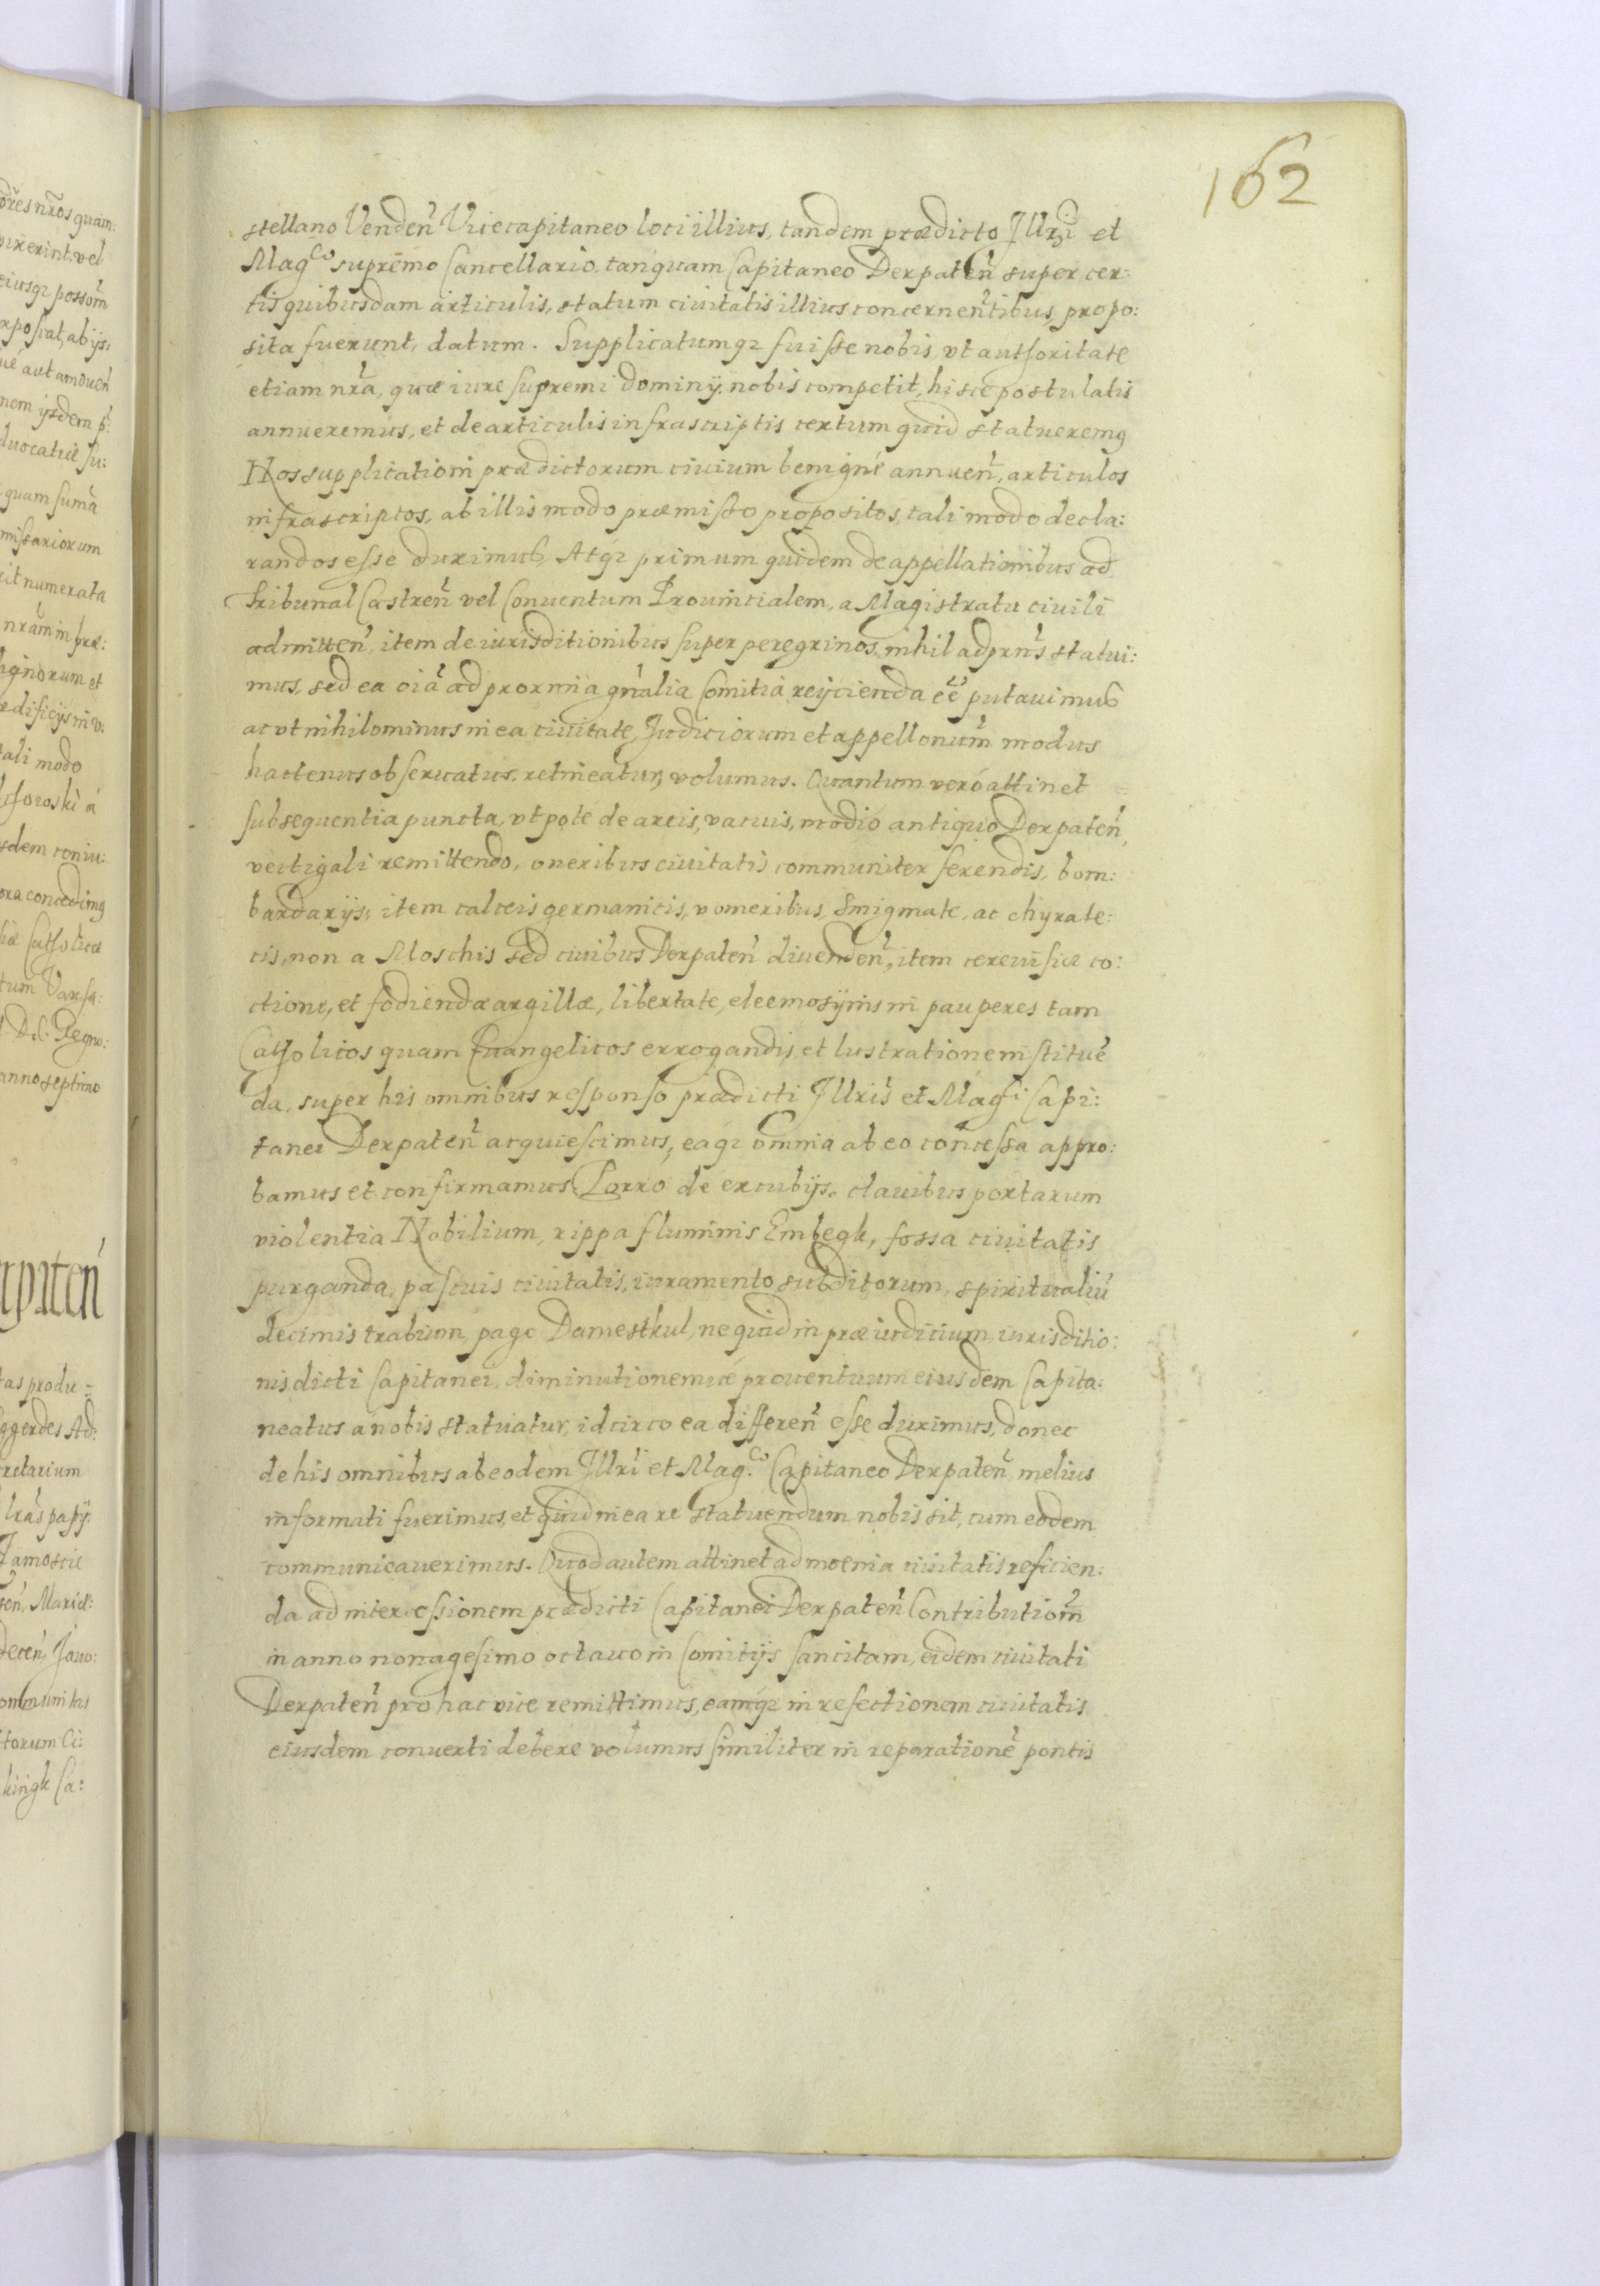 162
stellano Vendeñ Vicecapitaneo loci illius, tandem prædicto Illri et
Magco supremo Cancellario, tanquam Capitaneo Derpateñ super cer:
tis quibusdam articulis, statum ciuitatis illius concernentibus, propo:
sita fuerunt, datum. Supplicatumq3 fuisse nobis, vt authoritate
etiam nra, quæ iure supremi dominÿ nobis competit, hisce postulatis
annueremus, et de articulis infrascriptis certum quid statueremq
Nos supplicatiom prædictorum ciuium benigné annueñ, articulos
infrascriptos, ab illis modo præmisso propositos, tali modo decla:
randos esse duximus, Atq3 primum quidem de appellationibus ad
tribunal Castreñ vel Conuentum Prouincialem, a Magistratu ciuili
admitteñ, item de iurisditionibus super peregrinos, nihil ad prns statui:
mus, sed ea oia ad proxima gnalia Comitia reÿcienda ee putauimus
ac vt nihilominus in ea ciuitate, Judiciorum et appellonum modus
hactenus obseruatus, retineatur, volumus. Quantum veró attinet
subsequentia puncta, vt pote de areis, vacuis, modio antiquo Derpateñ,
vectigali remittendo, oneribus ciuitatis communiter ferendis, bom:
bardarÿs, item calceis germanicis, vomeribus, Smigmate, ac chyrate:
cis, non a Moschis sed ciuibus Derpateñ diuendeñ, item cereuisiæ co:
ctione, et fodiendæ argillæ, libertate, eleemosÿnis in pauperes tam
Catholicos quam Euangelicos errogandis, et lustratione instituẽ
da, super his omnibus responso prædicti Illris et Magci Capi:
tanei Derpateñ acquiescimus, eaq3 omnia ab eo concessa appro:
bamus et confirmamus. Porro de excubÿs, clauibus portarum
violentia Nobilium, rippa fluminis Embegk, fossa ciuitatis
purganda, pascuis ciuitatis, iuramento subditorum, spiritualiũ
decimis trabium, pago Damestkul, ne quid in præiudicium, iurisditio:
nis, dicti Capitanei, diminutionemué prouentuum eiusdem Capita:
neatus a nobis statuatur, idcirco ea differeñ esse duximus, donec
de his omnibus ab eodem Illri et Magco Capitaneo Derpateñ, melius
informati fuerimus, et quid in ea re statuendum nobis sit, cum eodem
communicauerimus. Quod autem attinet ad moenia ciuitatis reficien:
da ad intercessionem prædicti Capitanei Derpateñ Contributiom
in anno nonagesimo octauo in Comitÿs sancitam, eidem ciuitati
Derpateñ pro hac vice remittimus, eamq3 in refectionem ciuitatis
eiusdem conuerti debere volumus similiter in reparationẽ pontis